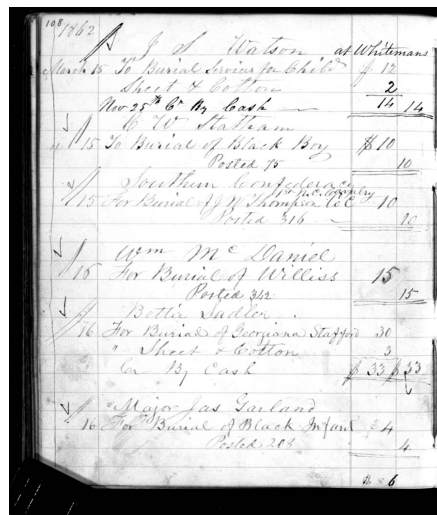 108
1862
J S Watson at Whitemans
March 15 To Burial Services for Child $ 12
Sheet & Cotton 2
Nov 25th Cr By Cash 14 14
C W Statham
" 15 To Burial of Black Boy $ 10
Posted 75 10
Southern Confederacy
1st N.C. Cavalry
15 For Burial of J N Thompson Co C 10
Posted 316 10
Wm Mc Daniel
16 For Burial of Williss 15
Posted 342 15
Bettie Sadler
16 For Burial of Georgiana Stafford 30
" Sheet & Cotton 3
Cr By Cash $ 33 $ 33
Major Jas Garland
16 For Burial of Black Infant $ 4
Posted 208 4
86